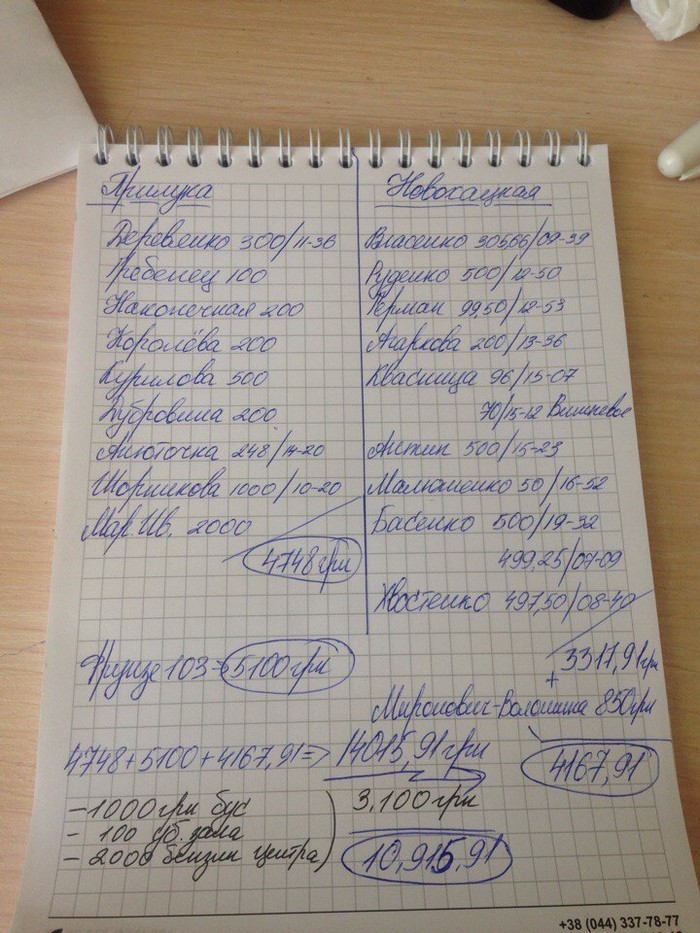 Прилука
Деровенко 300/11-36
Гребенец 100
Наконечная 200
Королёва 200
Курилова 500
Дубровина 200
Анюточка 248/14-20
Шорникова 1000/10-20
Мар. Ив. 2000
4748 грн
Новохацкая
Власенко 30566/09-39
Руденко 500/12-50
Герман 99,50/12-53
Агаркова 200/13-36
Квасница 96/15-07
70/15-12 Вишневое
500/15-23
50/16-52
Басенко 500/19-32
499,25/07-09
Хвостенко 497,50/08-40
3317,91 грн
+
Миронович-Волошина 850 грн
4167,91
Фрунзе 103 - 5100 грн
4748+5100+4167,91=> 14015,91 грн
- 1000 грн бус
- 100 уб. зала
- 2000 бензин центра)
3,100 грн
10,915,91
+38 (044) 337-78-77